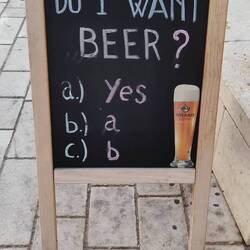 DO I WANT
BEER?
a.) Yes
b.) a
c.) b